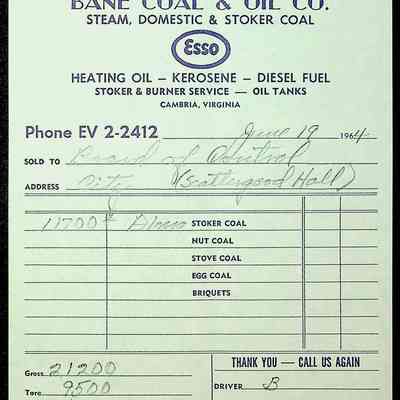 BANE COAL & OIL CO.
STEAM, DOMESTIC & STOKER COAL
Esso
HEATING OIL — KEROSENE — DIESEL FUEL
STOKER & BURNER SERVICE — OIL TANKS
CAMBRIA, VIRGINIA
Phone EV 2-2412 June 19 1964
SOLD TO Board of Control
ADDRESS City (Scattergood Hall)
11700# STOKER COAL
NUT COAL
STOVE COAL
EGG COAL
BRIQUETS
Gross 21200
Tare 9500
THANK YOU — CALL US AGAIN
DRIVER B